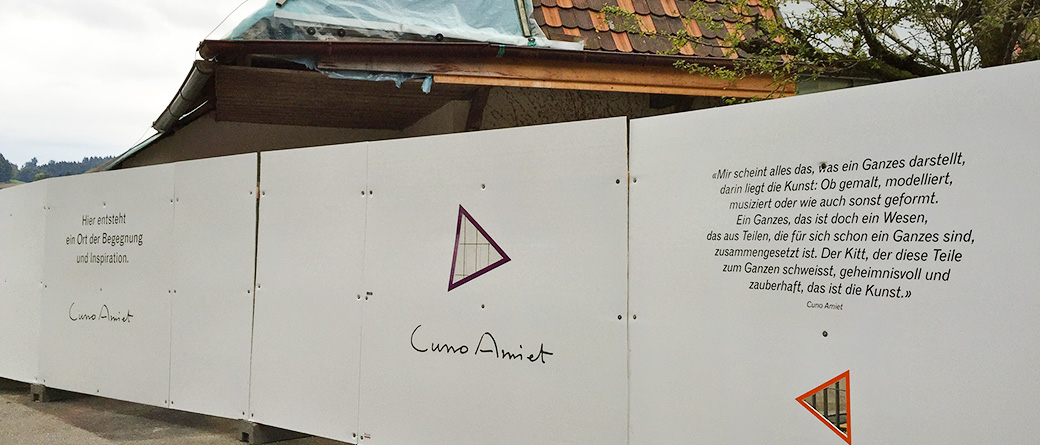 Hier entsteht
ein Ort der Begegnung
und Inspiration.
Cuno Amiet
Cuno Amiet
«Mir scheint alles das, was ein Ganzes darstellt,
darin liegt die Kunst: Ob gemalt, modelliert,
musiziert oder wie auch sonst geformt.
Ein Ganzes, das ist doch ein Wesen,
das aus Teilen, die für sich schon ein Ganzes sind,
zusammengesetzt ist. Der Kitt, der diese Teile
zum Ganzen schweisst, geheimnisvoll und
zauberhaft, das ist die Kunst.»
Cuno Amiet